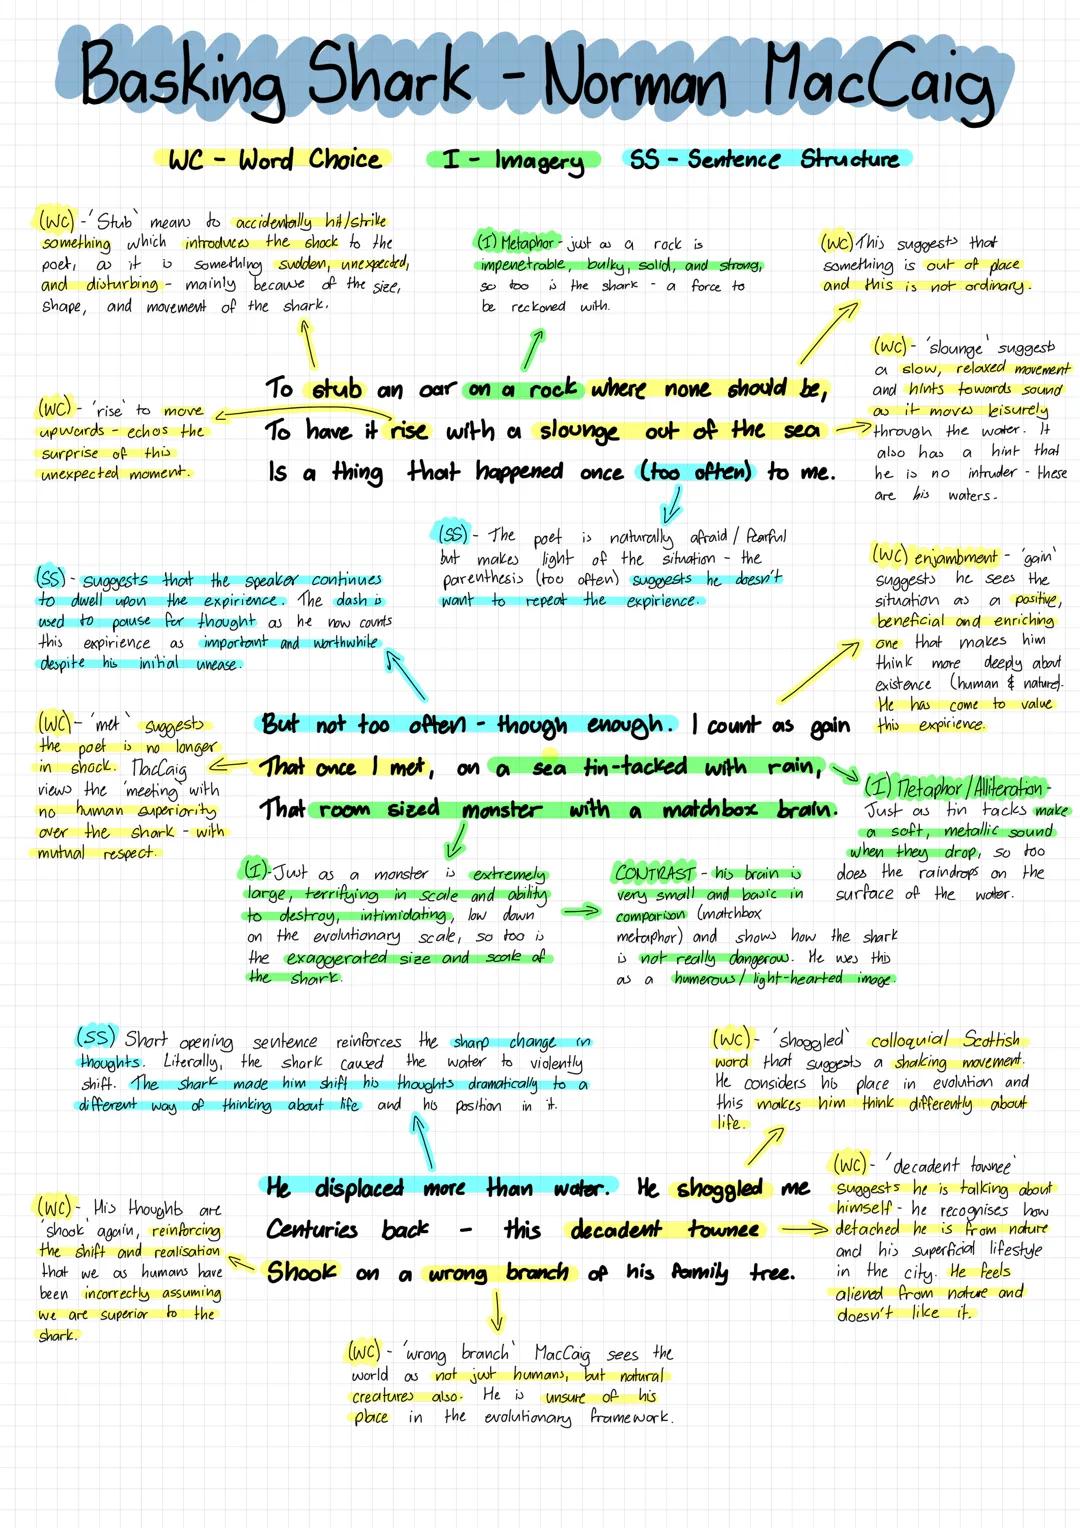 Basking Shark - Norman MacCaig
WC - Word Choice
I - Imagery
SS - Sentence Structure
(WC) - 'Stub' means to accidentally hit/strike
something which introduces the shock to the
poet, as it is something sudden, unexpected,
and disturbing - mainly because of the size,
shape, and movement of the shark.
(I) Metaphor - just as a rock is
impenetrable, bulky, solid, and strong,
so too is the shark - a force to
be reckoned with.
(WC) This suggests that
something is out of place
and this is not ordinary.
(WC) - 'slounge' suggests
a slow, relaxed movement
and hints towards sound
as it moves leisurely
through the water. It
also has a hint that
he is no intruder - these
are his waters.
(WC) - 'rise' to move
upwards - echos the
surprise of this
unexpected moment.
To stub an oar on a rock where none should be,
To have it rise with a slounge out of the sea
Is a thing that happened once (too often) to me.
(SS) - The poet is naturally afraid / fearful
but makes light of the situation - the
parenthesis (too often) suggests he doesn't
want to repeat the expirience.
(SS) - suggests that the speaker continues
to dwell upon the expirience. The dash is
used to pause for thought as he now counts
this expirience as important and worthwhile
despite his initial unease.
(WC) enjambment - 'gain'
suggests he sees the
situation as a positive,
beneficial and enriching
one that makes him
think more deeply about
existence (human & nature).
He has come to value
this expirience.
(WC) - 'met' suggests
the poet is no longer
in shock. MacCaig
views the 'meeting' with
no human superiority
over the shark - with
mutual respect.
But not too often - though enough. I count as gain
That once I met, on a sea tin-tacked with rain,
That room sized monster with a matchbox brain.
(I) Metaphor/Alliteration -
Just as tin tacks make
a soft, metallic sound
when they drop, so too
does the raindrops on the
surface of the water.
(I) - Just as a monster is extremely
large, terrifying in scale and ability
to destroy, intimidating, low down
on the evolutionary scale, so too is
the exaggerated size and scale of
the shark.
CONTRAST - his brain is
very small and basic in
comparison (matchbox
metaphor) and shows how the shark
is not really dangerous. He uses this
as a humerous/ light-hearted image.
(SS) Short opening sentence reinforces the sharp change in
thoughts. Literally, the shark caused the water to violently
shift. The shark made him shift his thoughts dramatically to a
different way of thinking about life and his position in it.
(WC) - 'shoggled' colloquial Scottish
word that suggests a shaking movement.
He considers his place in evolution and
this makes him think differently about
life.
He displaced more than water. He shoggled me
Centuries back - this decadent townee
Shook on a wrong branch of his family tree.
(WC) - 'decadent townee'
suggests he is talking about
himself - he recognises how
detached he is from nature
and his superficial lifestyle
in the city. He feels
aliened from nature and
doesn't like it.
(WC) - His thoughts are
'shook' again, reinforcing
the shift and realisation
that we as humans have
been incorrectly assuming
we are superior to the
shark.
(WC) - 'wrong branch' MacCaig sees the
world as not just humans, but natural
creatures also. He is unsure of his
place in the evolutionary framework.